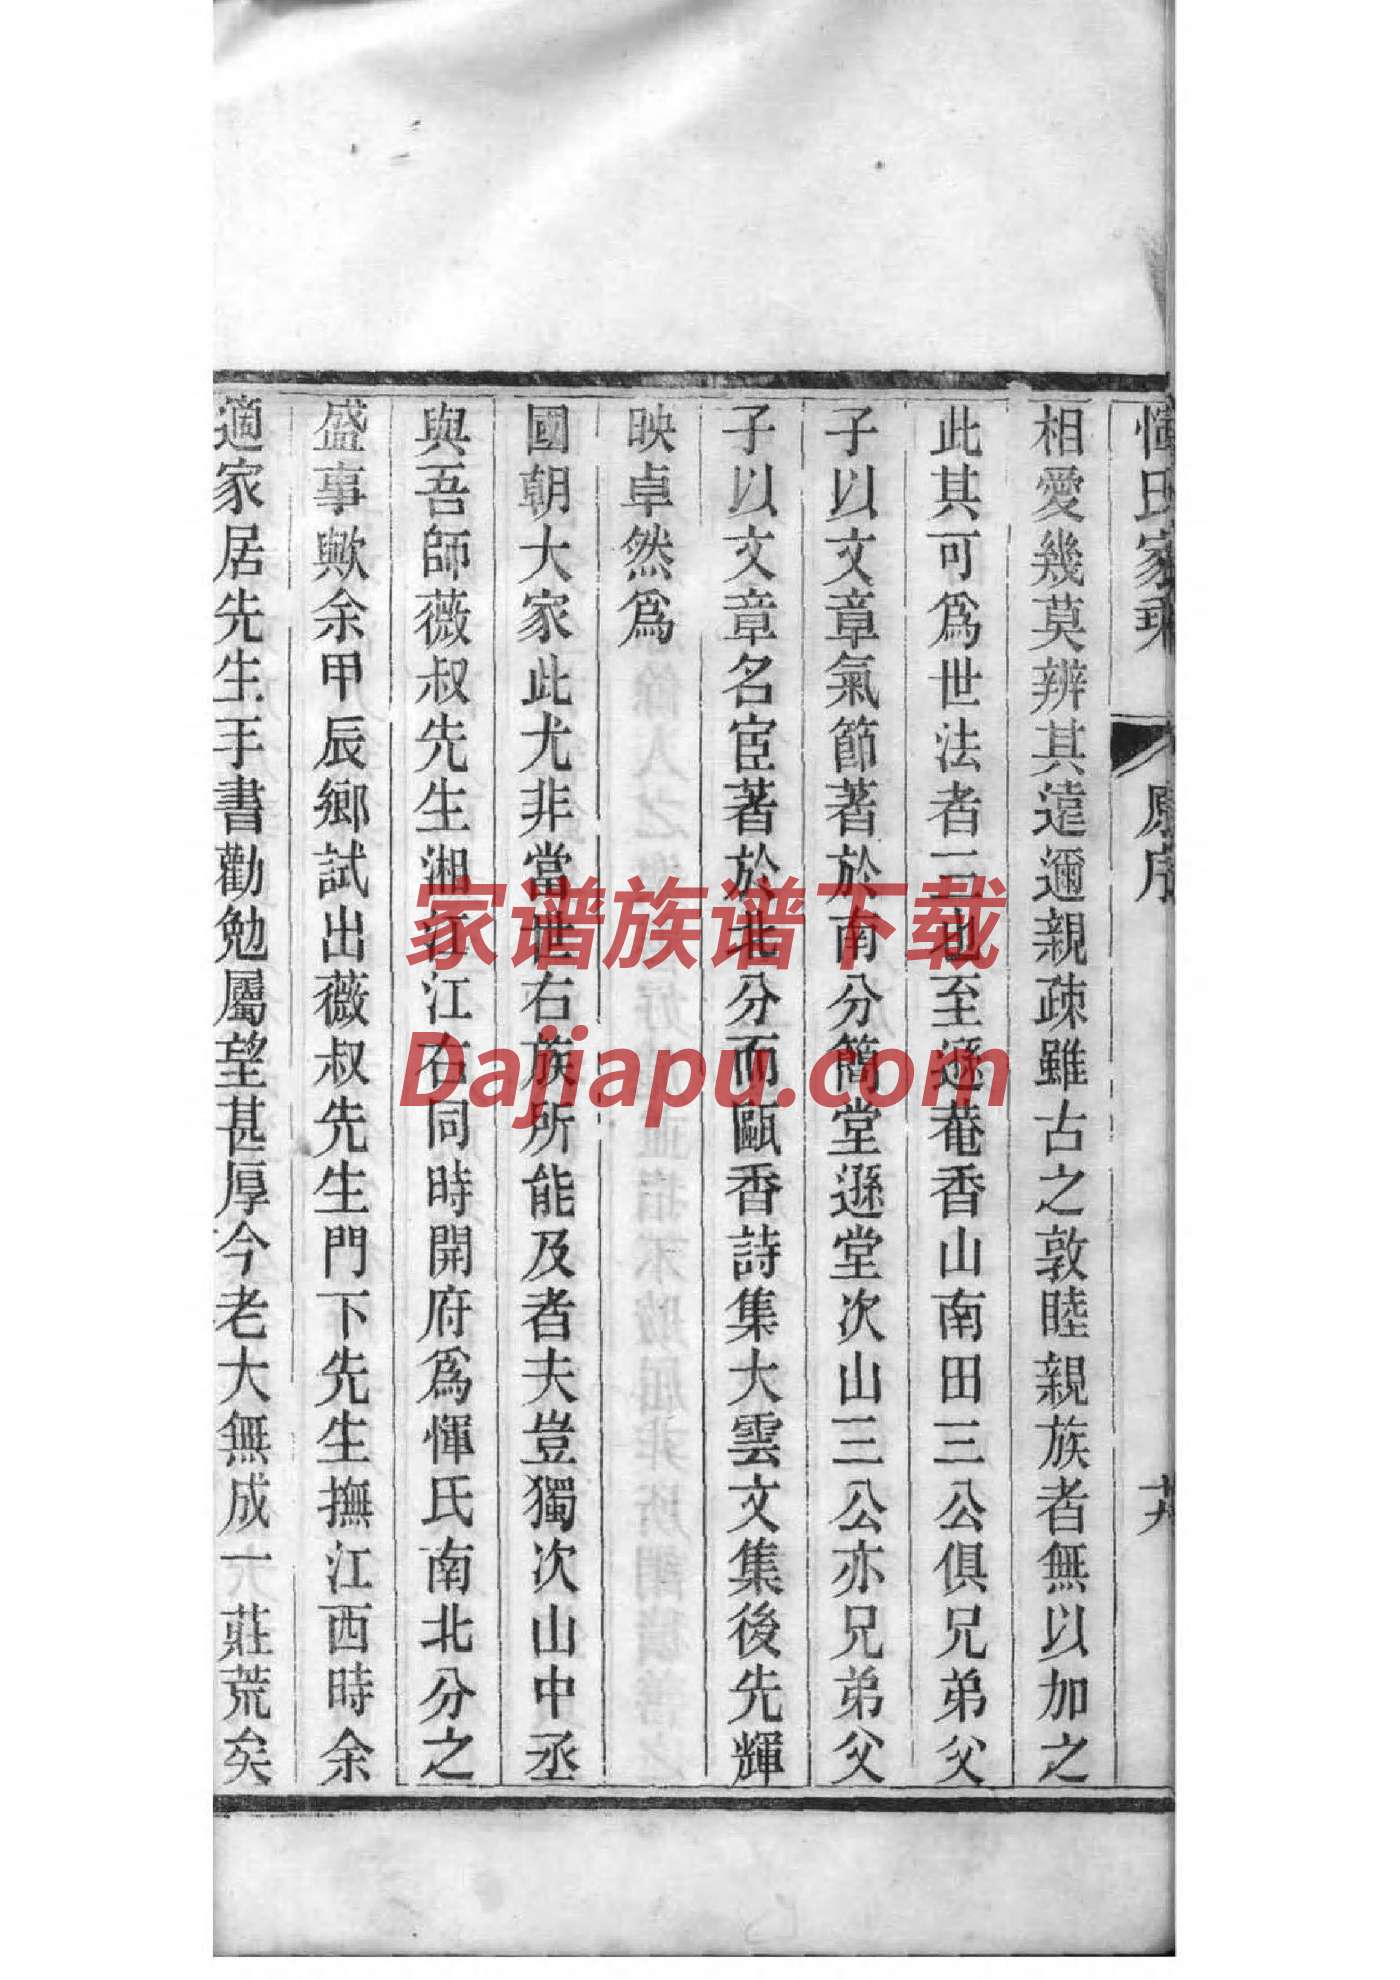 惲氏家乘 原序
相愛幾莫辨其遠邇親疎雖古之敦睦親族者無以加之
此其可爲世法者三也至遜菴香山南田三公俱兄弟父
子以文章氣節著於南分簡堂遜堂次山三公亦兄弟父
子以文章名宦著於北分而甌香詩集大雲文集後先輝
映卓然爲
國朝大家此尤非當世右族所能及者夫豈獨次山中丞
與吾師薇叔先生湘江江右同時開府爲惲氏南北分之
盛事歟余甲辰鄉試出薇叔先生門下先生撫江西時余
適家居先生手書勸勉屬望甚厚今老大無成一莊荒矣
家谱族谱下载
Dajiapu.com